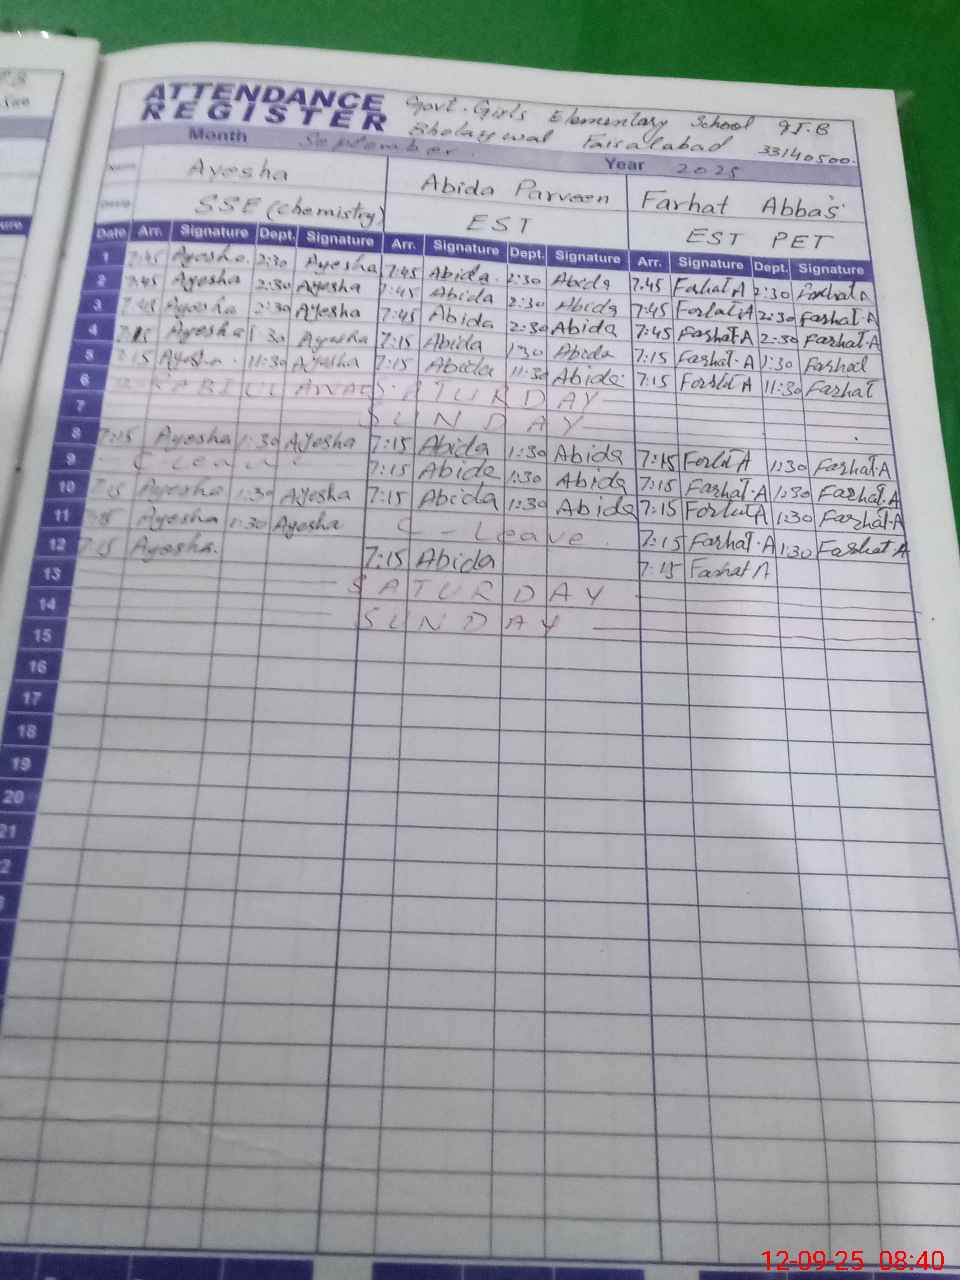 ATTENDANCE REGISTER
Govt. Girls Elementary School 9J.B
Bholay wal Faisalabad 33140500.
Month September Year 2025
Ayesha Abida Parveen Farhat Abbas
SSE (chemistry) EST EST PET
Date Arr. Signature Dept. Signature Arr. Signature Dept. Signature Arr. Signature Dept. Signature
1 7:45 Ayesha 2:30 Ayesha 7:45 Abida 2:30 Abida 7:45 Farhat A 2:30 Farhat A
2 7:45 Ayesha 2:30 Ayesha 7:45 Abida 2:30 Abida 7:45 Farhat A 2:30 Farhat.A
3 7:45 Ayesha 2:30 Ayesha 7:45 Abida 2:30 Abida 7:45 Farhat.A 2:30 Farhat.A
4 7:15 Ayesha 1:30 Ayesha 7:15 Abida 1:30 Abida 7:15 Farhat.A 1:30 Farhat
5 7:15 Ayesha 11:30 Ayesha 7:15 Abida 11:30 Abida 7:15 Farhat A 11:30 Farhat
6 SATURDAY
7 SUNDAY
8 7:15 Ayesha 1:30 Ayesha 7:15 Abida 1:30 Abida 7:15 Farhat A 1:30 Farhat.A
9 C Leave 7:15 Abida 1:30 Abida 7:15 Farhat.A 1:30 Farhat.A
10 7:15 Ayesha 1:30 Ayesha 7:15 Abida 1:30 Abida 7:15 Farhat A 1:30 Farhat.A
11 7:15 Ayesha 1:30 Ayesha C - Leave 7:15 Farhat.A 1:30 Farhat A
12 7:15 Ayesha. 7:15 Abida 7:15 Farhat A
13 SATURDAY
14 SUNDAY
15
16
17
18
19
20
21
12-09-25 08:40